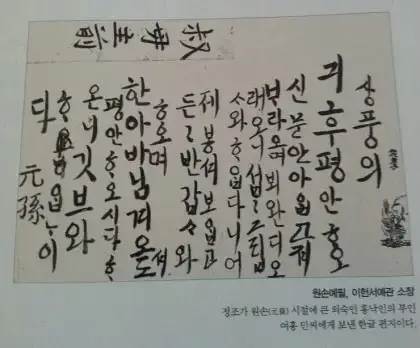 叔母主前
상풍의
긔후 평안ᄒᆞ오
신 문안 아ᄋᆞᆸ고져
ᄇᆞ라오며 뵈완디 오
래오니 섭섭 그립
ᄉᆞ와 ᄒᆞᄋᆞᆸ다니 어
제 봉셔 보ᄋᆞᆸ고
든든 반갑ᄉᆞ와
ᄒᆞ오며
한아바님 겨오셔도
평안ᄒᆞ오시다 ᄒᆞ
온니 깃브와
ᄒᆞᄋᆞᆸᄂᆞ이
다
元孫
원손예필, 이헌서예관 소장
정조가 원손(元孫) 시절에 큰 외숙인 홍낙인의 부인
여흥 민씨에게 보낸 한글 편지이다.